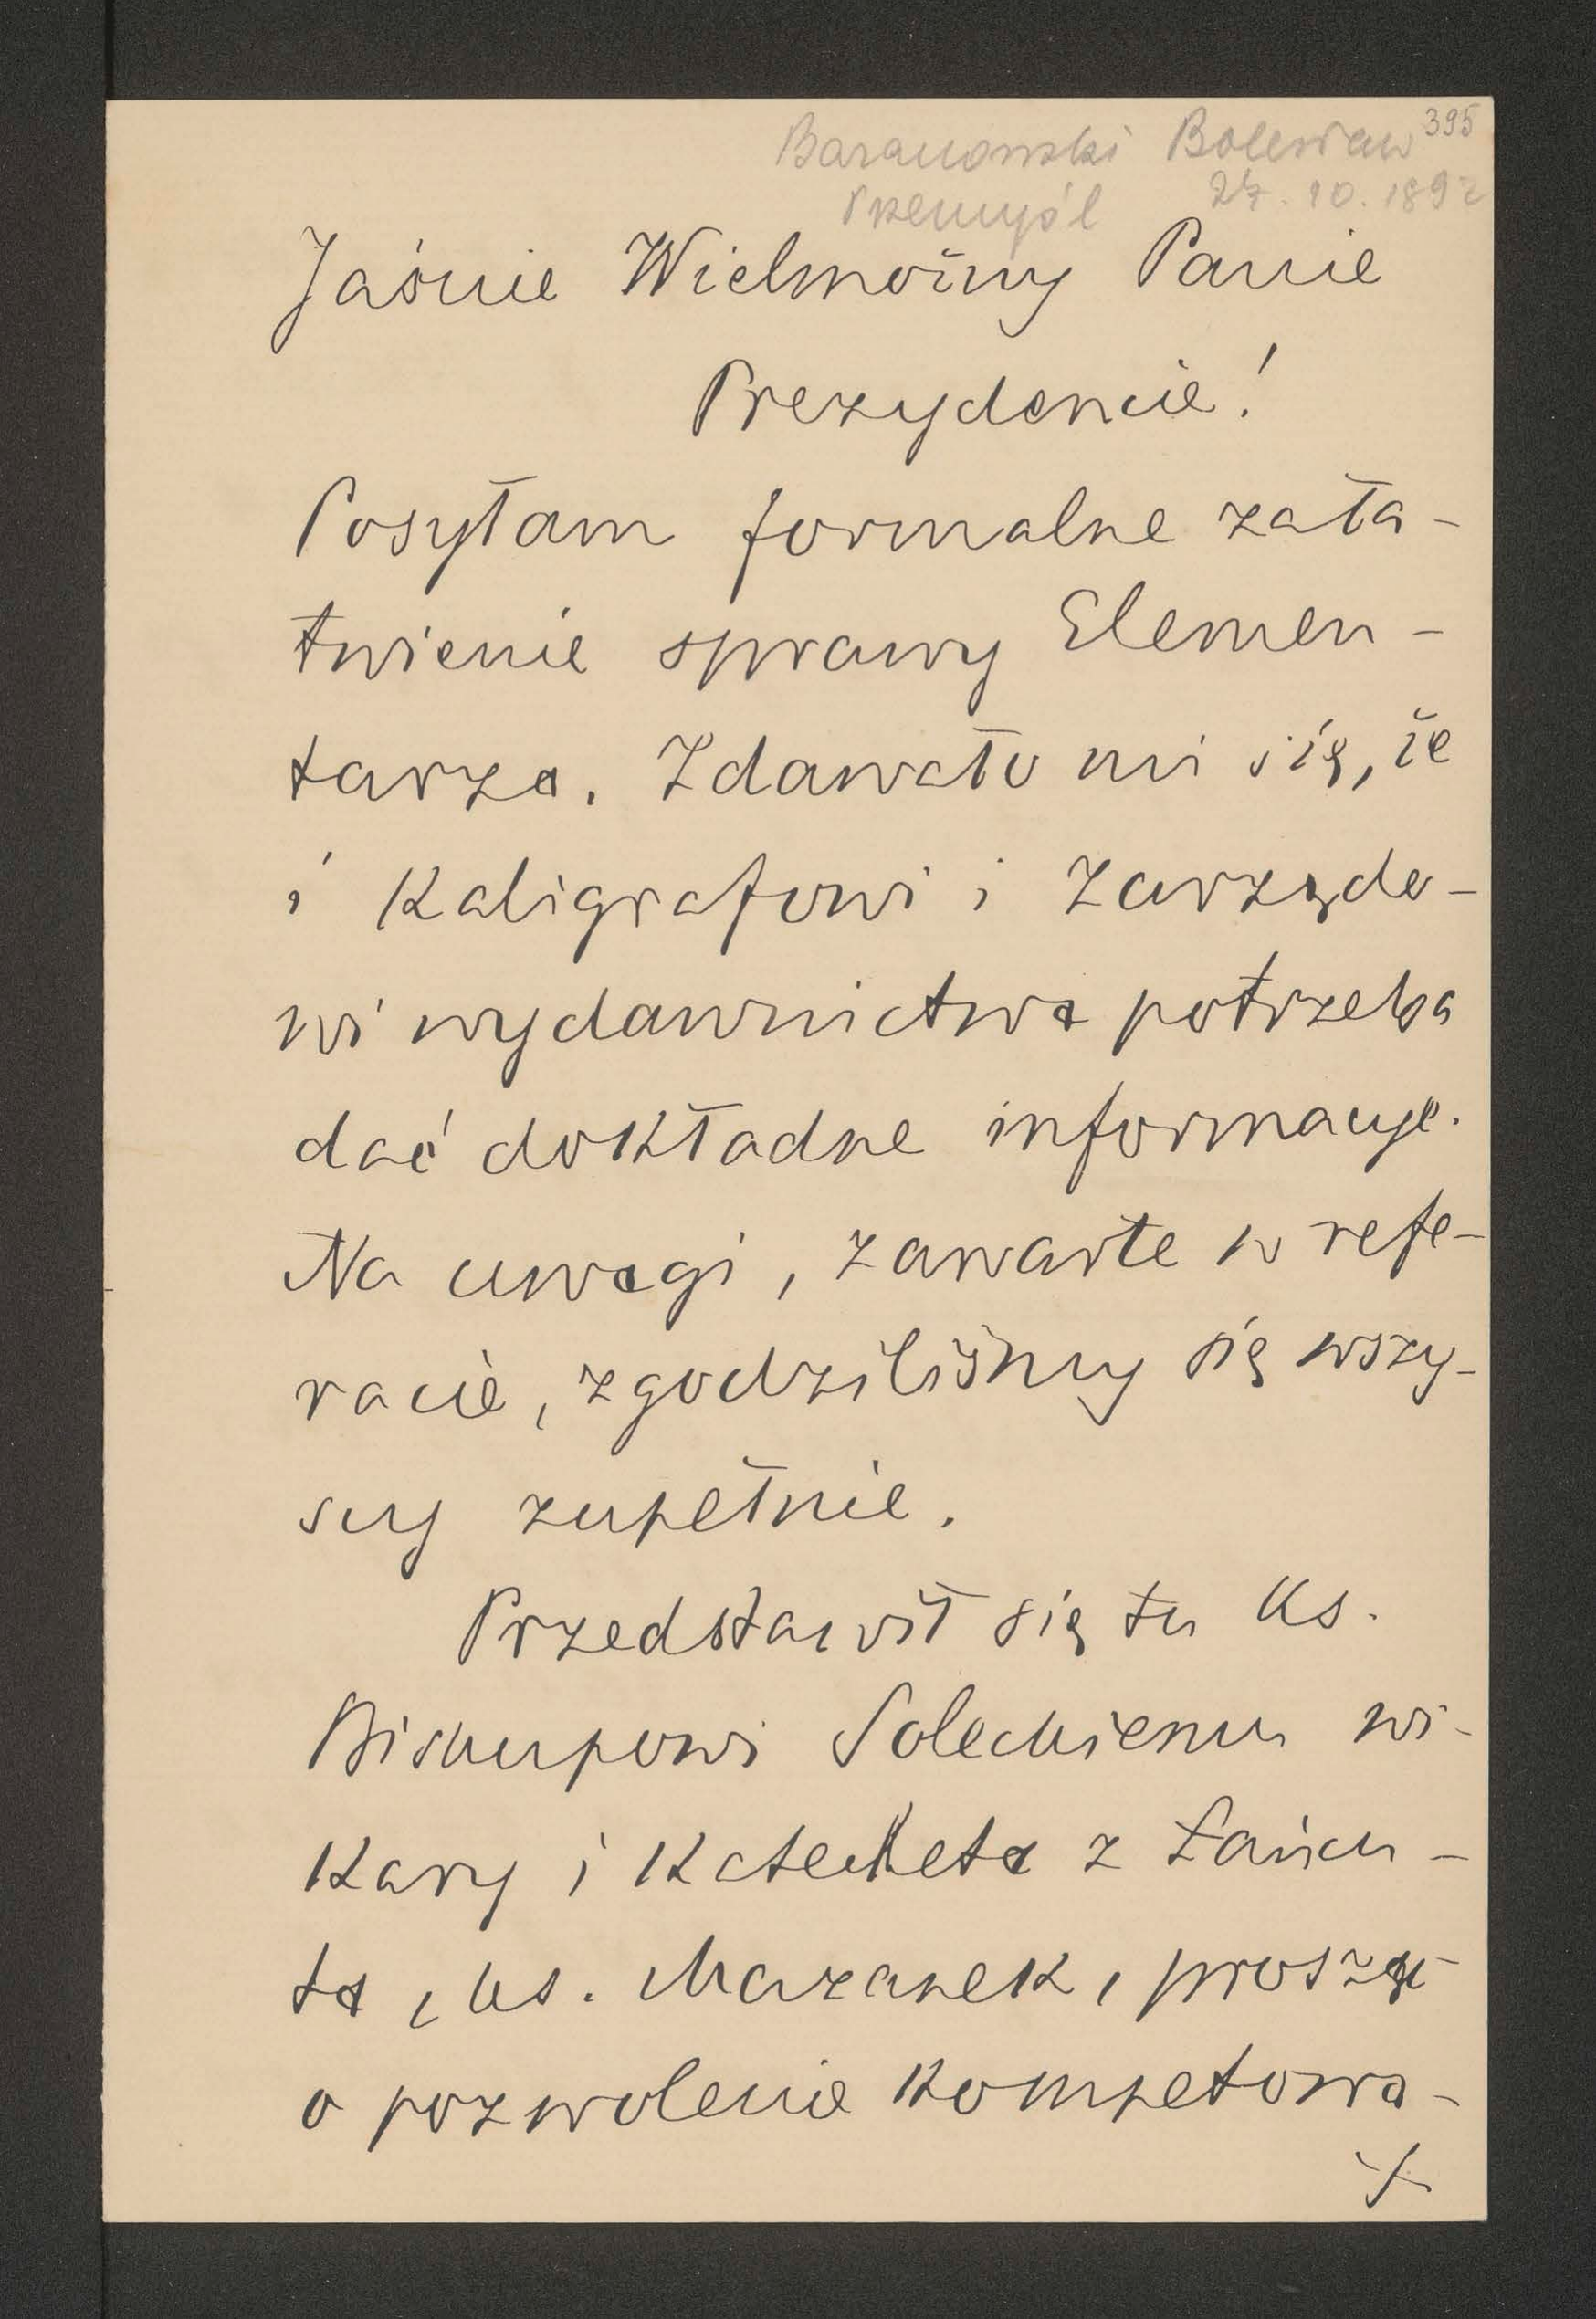 395
Baranowski Bolesław
Przemyśl 27. 10. 1892
Jaśnie Wielmożny Panie
Prezydencie!
Posyłam formalne zała-
twienie sprawy Elemen-
tarza. Zdawało mi się, że
i Kaligrafowi i Zarządo-
wi wydawnictwa potrzeba
dać dokładne informacye.
Na uwagi, zawarte w refe-
racie, zgodziliśmy się wszy-
scy zupełnie.
Przedstawił się tu Ks.
Biskupowi Soleckiemu wi-
kary i Katecheta z Łańcu-
ta, ks. Mazanek, prosząc
o pozwolenie kompetowa-